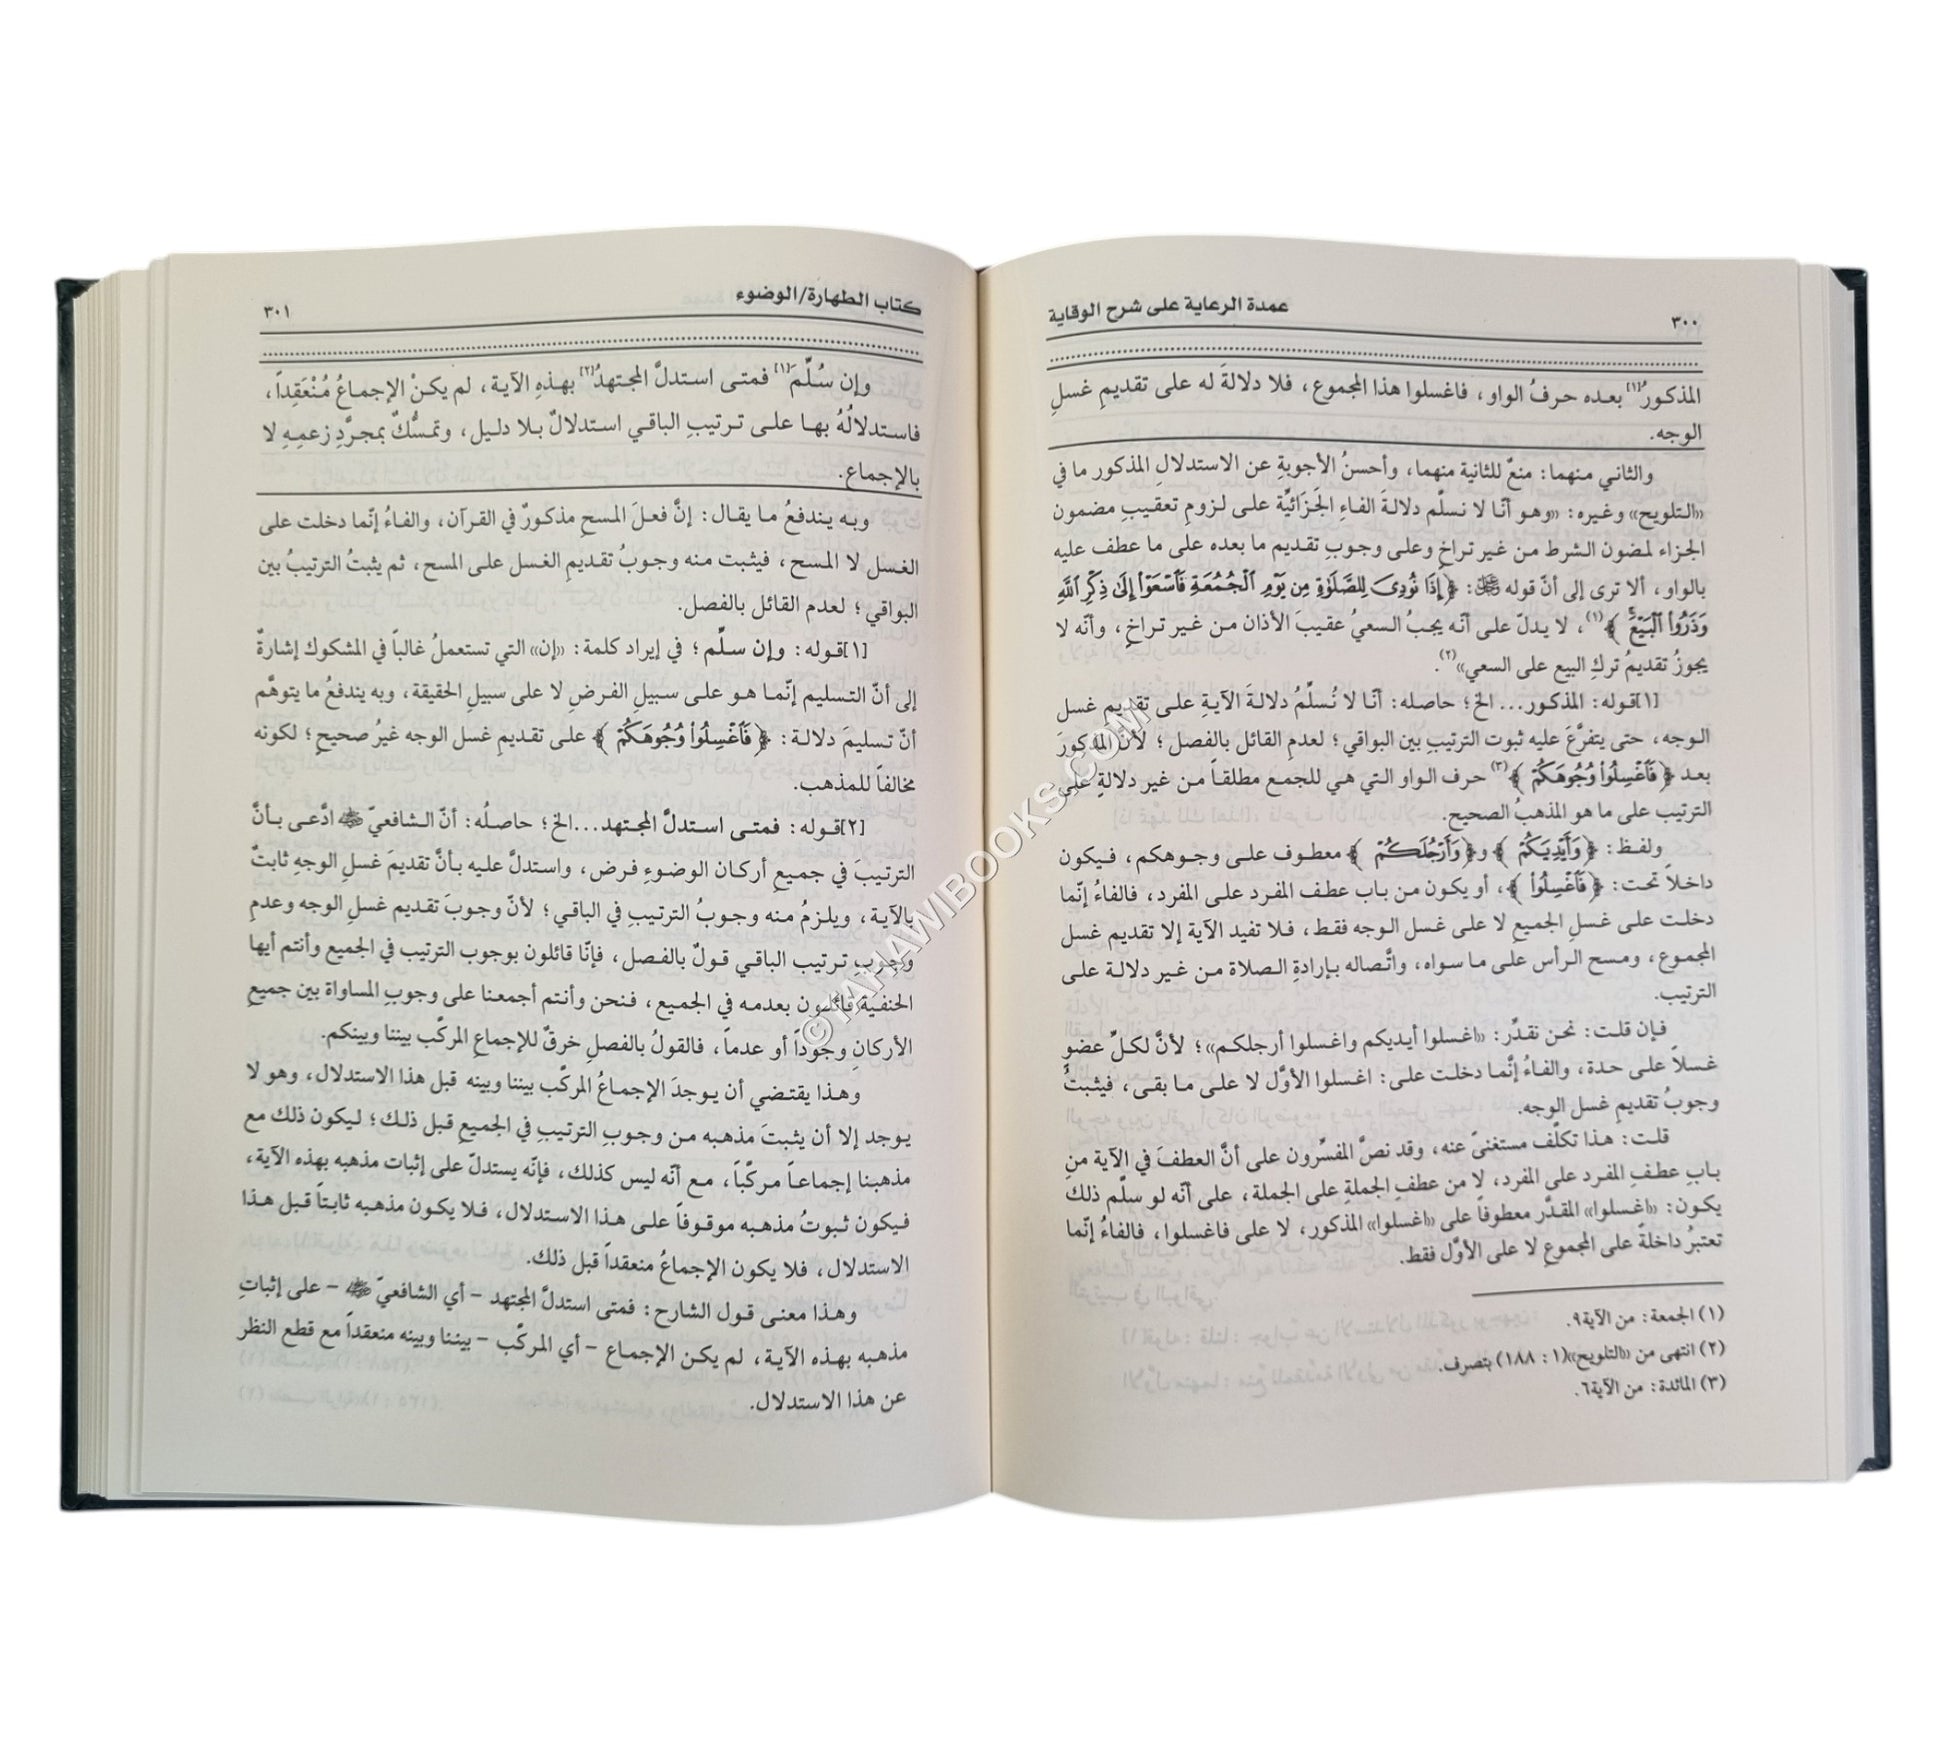 عمدة الرعاية على شرح الوقاية
٣٠٠
المذكورُ[١] بعده حرفُ الواو، فاغسلوا هذا المجموع، فلا دلالةَ له على تقديمِ غسلِ
الوجه.
والثاني منهما: منعٌ للثانية منهما، وأحسنُ الأجوبةِ عن الاستدلالِ المذكور ما في
«التلويح» وغيره: «وهو أنّا لا نسلّم دلالةَ الفاءِ الجَزائيَّة على لزومِ تعقيبِ مضمون
الجزاء لمضون الشرط من غير تراخٍ وعلى وجوبِ تقديم ما بعده على ما عطف عليه
بالواو، ألا ترى إلى أنّ قوله ﷻ: ﴿إِذَا نُودِىَ لِلصَّلَوٰةِ مِن يَوْمِ ٱلْجُمُعَةِ فَٱسْعَوْا۟ إِلَىٰ ذِكْرِ ٱللَّهِ
وَذَرُوا۟ ٱلْبَيْعَ﴾(١)، لا يدلّ على أنّه يجبُ السعيُ عقيبَ الأذان من غير تراخٍ، وأنّه لا
يجوزُ تقديمُ تركِ البيع على السعي»(٢).
[١]قوله: المذكور... الخ؛ حاصله: أنّا لا نُسلِّمُ دلالةَ الآيةِ على تقديمِ غسل
الوجه، حتى يتفرَّعَ عليه ثبوت الترتيبِ بين البواقي؛ لعدمِ القائل بالفصل؛ لأنَّ المذكورَ
بعد ﴿فَٱغْسِلُوا۟ وُجُوهَكُمْ﴾(٣) حرف الواو التي هي للجمع مطلقاً من غير دلالةٍ على
الترتيب على ما هو المذهبُ الصحيح.
ولفظ: ﴿وَأَيْدِيَكُمْ﴾ و﴿وَأَرْجُلَكُمْ﴾ معطوف على وجوهكم، فيكون
داخلاً تحت: ﴿فَٱغْسِلُوا۟﴾، أو يكون من باب عطف المفرد على المفرد، فالفاءُ إنّما
دخلت على غسلِ الجميعِ لا على غسل الوجه فقط، فلا تفيد الآية إلا تقديم غسل
المجموع، ومسح الرأس على ما سواه، واتّصاله بإرادةِ الصلاة من غير دلالة على
الترتيب.
فإن قلت: نحن نقدِّر: «اغسلوا أيديكم واغسلوا أرجلكم»؛ لأنَّ لكلِّ عضوٍ
غسلاً على حدة، والفاءُ إنَّما دخلت على: اغسلوا الأوَّل لا على ما بقى، فيثبتُ
وجوبُ تقديمِ غسل الوجه.
قلت: هذا تكلّف مستغنىً عنه، وقد نصَّ المفسِّرون على أنَّ العطفَ في الآية من
بابِ عطفِ المفرد على المفرد، لا من عطفِ الجملةِ على الجملة، على أنّه لو سلّم ذلك
يكون: «اغسلوا» المقدَّر معطوفاً على «اغسلوا» المذكور، لا على فاغسلوا، فالفاءُ إنّما
تعتبرُ داخلةً على المجموعِ لا على الأوَّل فقط.
(١) الجمعة: من الآية٩.
(٢) انتهى من «التلويح»(١: ١٨٨) بتصرف.
(٣) المائدة: من الآية٦.
كتاب الطهارة/الوضوء
٣٠١
وإن سُلِّمَ[١] فمتى استدلَّ المجتهدُ[٢] بهذهِ الآية، لم يكنْ الإجماعُ مُنْعَقِداً،
فاستدلالُهُ بها على ترتيبِ الباقي استدلالٌ بلا دليل، وتمسُّكٌ بمجرَّدِ زعمِهِ لا
بالإجماع.
وبه يندفعُ ما يقال: إنَّ فعلَ المسحِ مذكورٌ في القرآن، والفاءُ إنّما دخلت على
الغسل لا المسح، فيثبت منه وجوبُ تقديمِ الغسل على المسح، ثم يثبتُ الترتيبُ بين
البواقي؛ لعدم القائل بالفصل.
[١]قوله: وإن سلّم؛ في إيراد كلمة: «إن» التي تستعملُ غالباً في المشكوك إشارةٌ
إلى أنّ التسليم إنّما هو على سبيل الفرضِ لا على سبيلِ الحقيقة، وبه يندفعُ ما يتوهَّم
أنّ تسليمَ دلالة: ﴿فَٱغْسِلُوا۟ وُجُوهَكُمْ﴾ على تقديمِ غسل الوجه غيرُ صحيحٍ؛ لكونه
مخالفاً للمذهب.
[٢]قوله: فمتى استدلَّ المجتهد...الخ؛ حاصلُه: أنّ الشافعيّ ﷺ ادَّعى بأنَّ
الترتيبَ في جميعِ أركان الوضوءِ فرض، واستدلَّ عليه بأنَّ تقديمَ غسلِ الوجهِ ثابتٌ
بالآية، ويلزمُ منه وجوبُ الترتيبِ في الباقي؛ لأنّ وجوبَ تقديم غسلِ الوجه وعدمِ
وجوبِ ترتيب الباقي قولٌ بالفصل، فإنّا قائلون بوجوب الترتيب في الجميع وأنتم أيها
الحنفية قائلون بعدمه في الجميع، فنحن وأنتم أجمعنا على وجوبِ المساواة بين جميعِ
الأركانِ وجُوداً أو عدماً، فالقولُ بالفصلِ خرقٌ للإجماعِ المركّب بيننا وبينكم.
وهذا يقتضي أن يوجدَ الإجماعُ المركّب بيننا وبينه قبل هذا الاستدلال، وهو لا
يوجد إلا أن يثبتَ مذهبه من وجوبِ الترتيبِ في الجميعِ قبل ذلك؛ ليكون ذلك مع
مذهبنا إجماعاً مركّباً، مع أنّه ليس كذلك، فإنّه يستدلّ على إثبات مذهبه بهذه الآية،
فيكون ثبوتُ مذهبه موقوفاً على هذا الاستدلال، فلا يكون مذهبه ثابتاً قبل هذا
الاستدلال، فلا يكون الإجماعُ منعقداً قبل ذلك.
وهذا معنى قول الشارح: فمتى استدلَّ المجتهد - أي الشافعيّ ﷺ - على إثباتِ
مذهبه بهذه الآية، لم يكن الإجماع - أي المركّب - بيننا وبينه منعقداً مع قطع النظر
عن هذا الاستدلال.
©TAHAWIBOOKS.COM